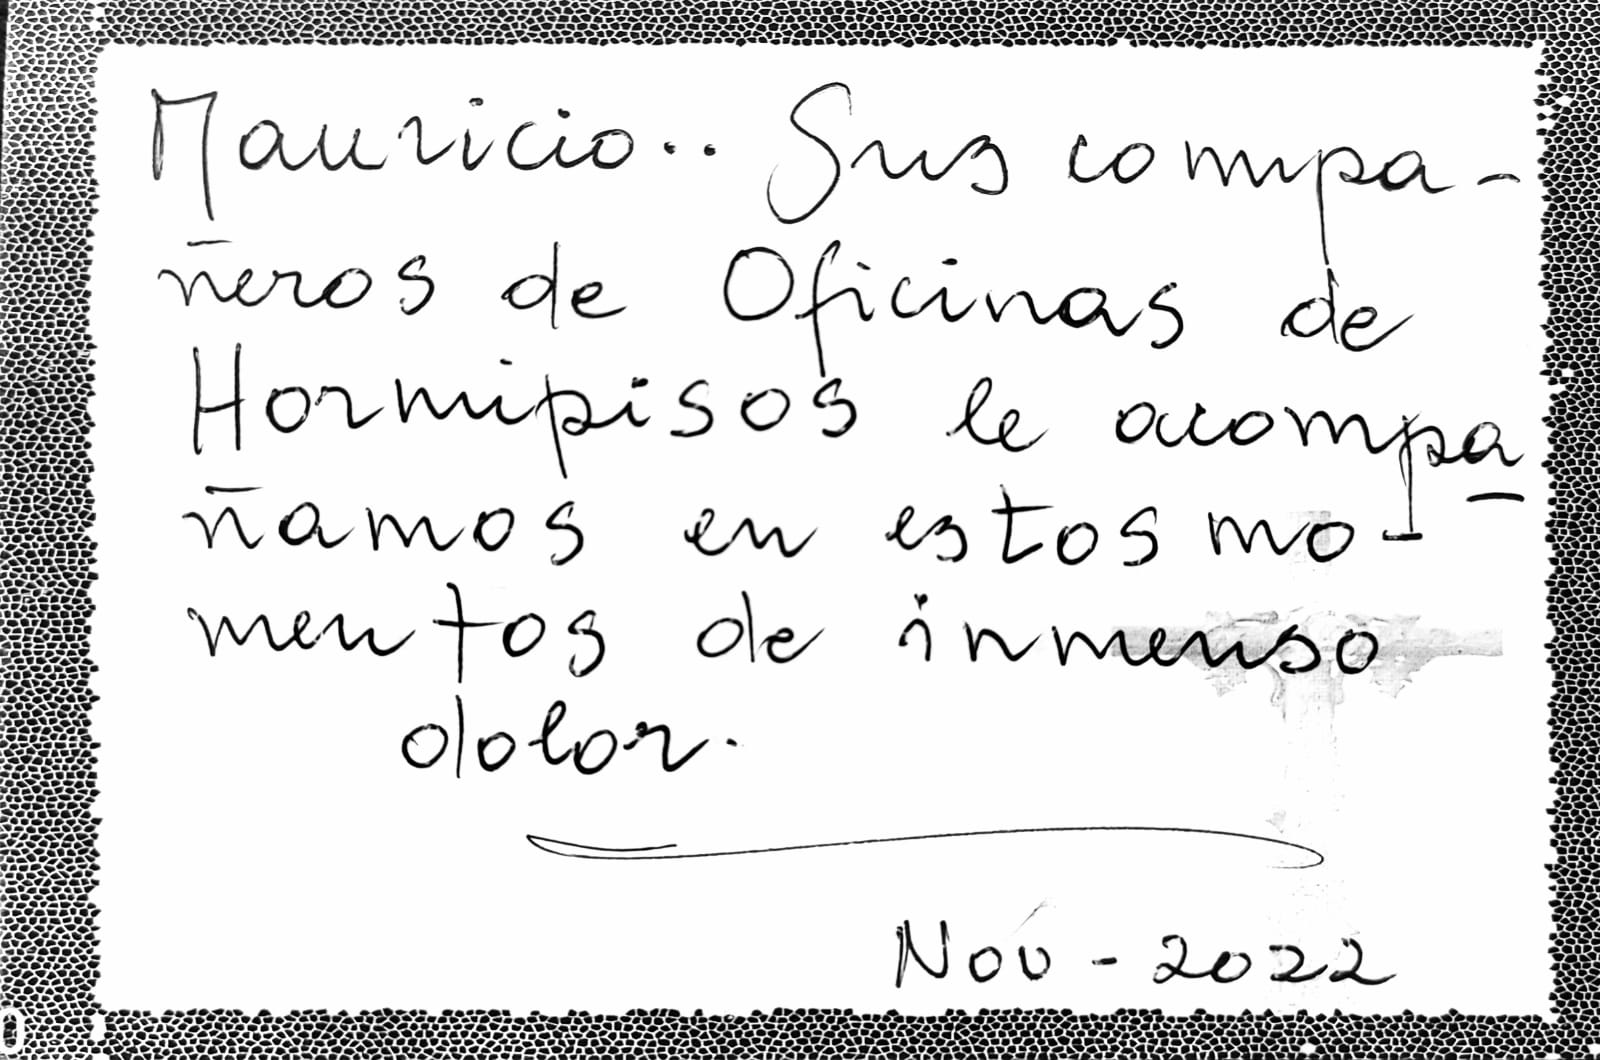 Mauricio.. Sus compa-
ñeros de Oficinas de
Hormipisos le acompa
ñamos en estos mo-
mentos de inmenso
dolor.
Nov - 2022